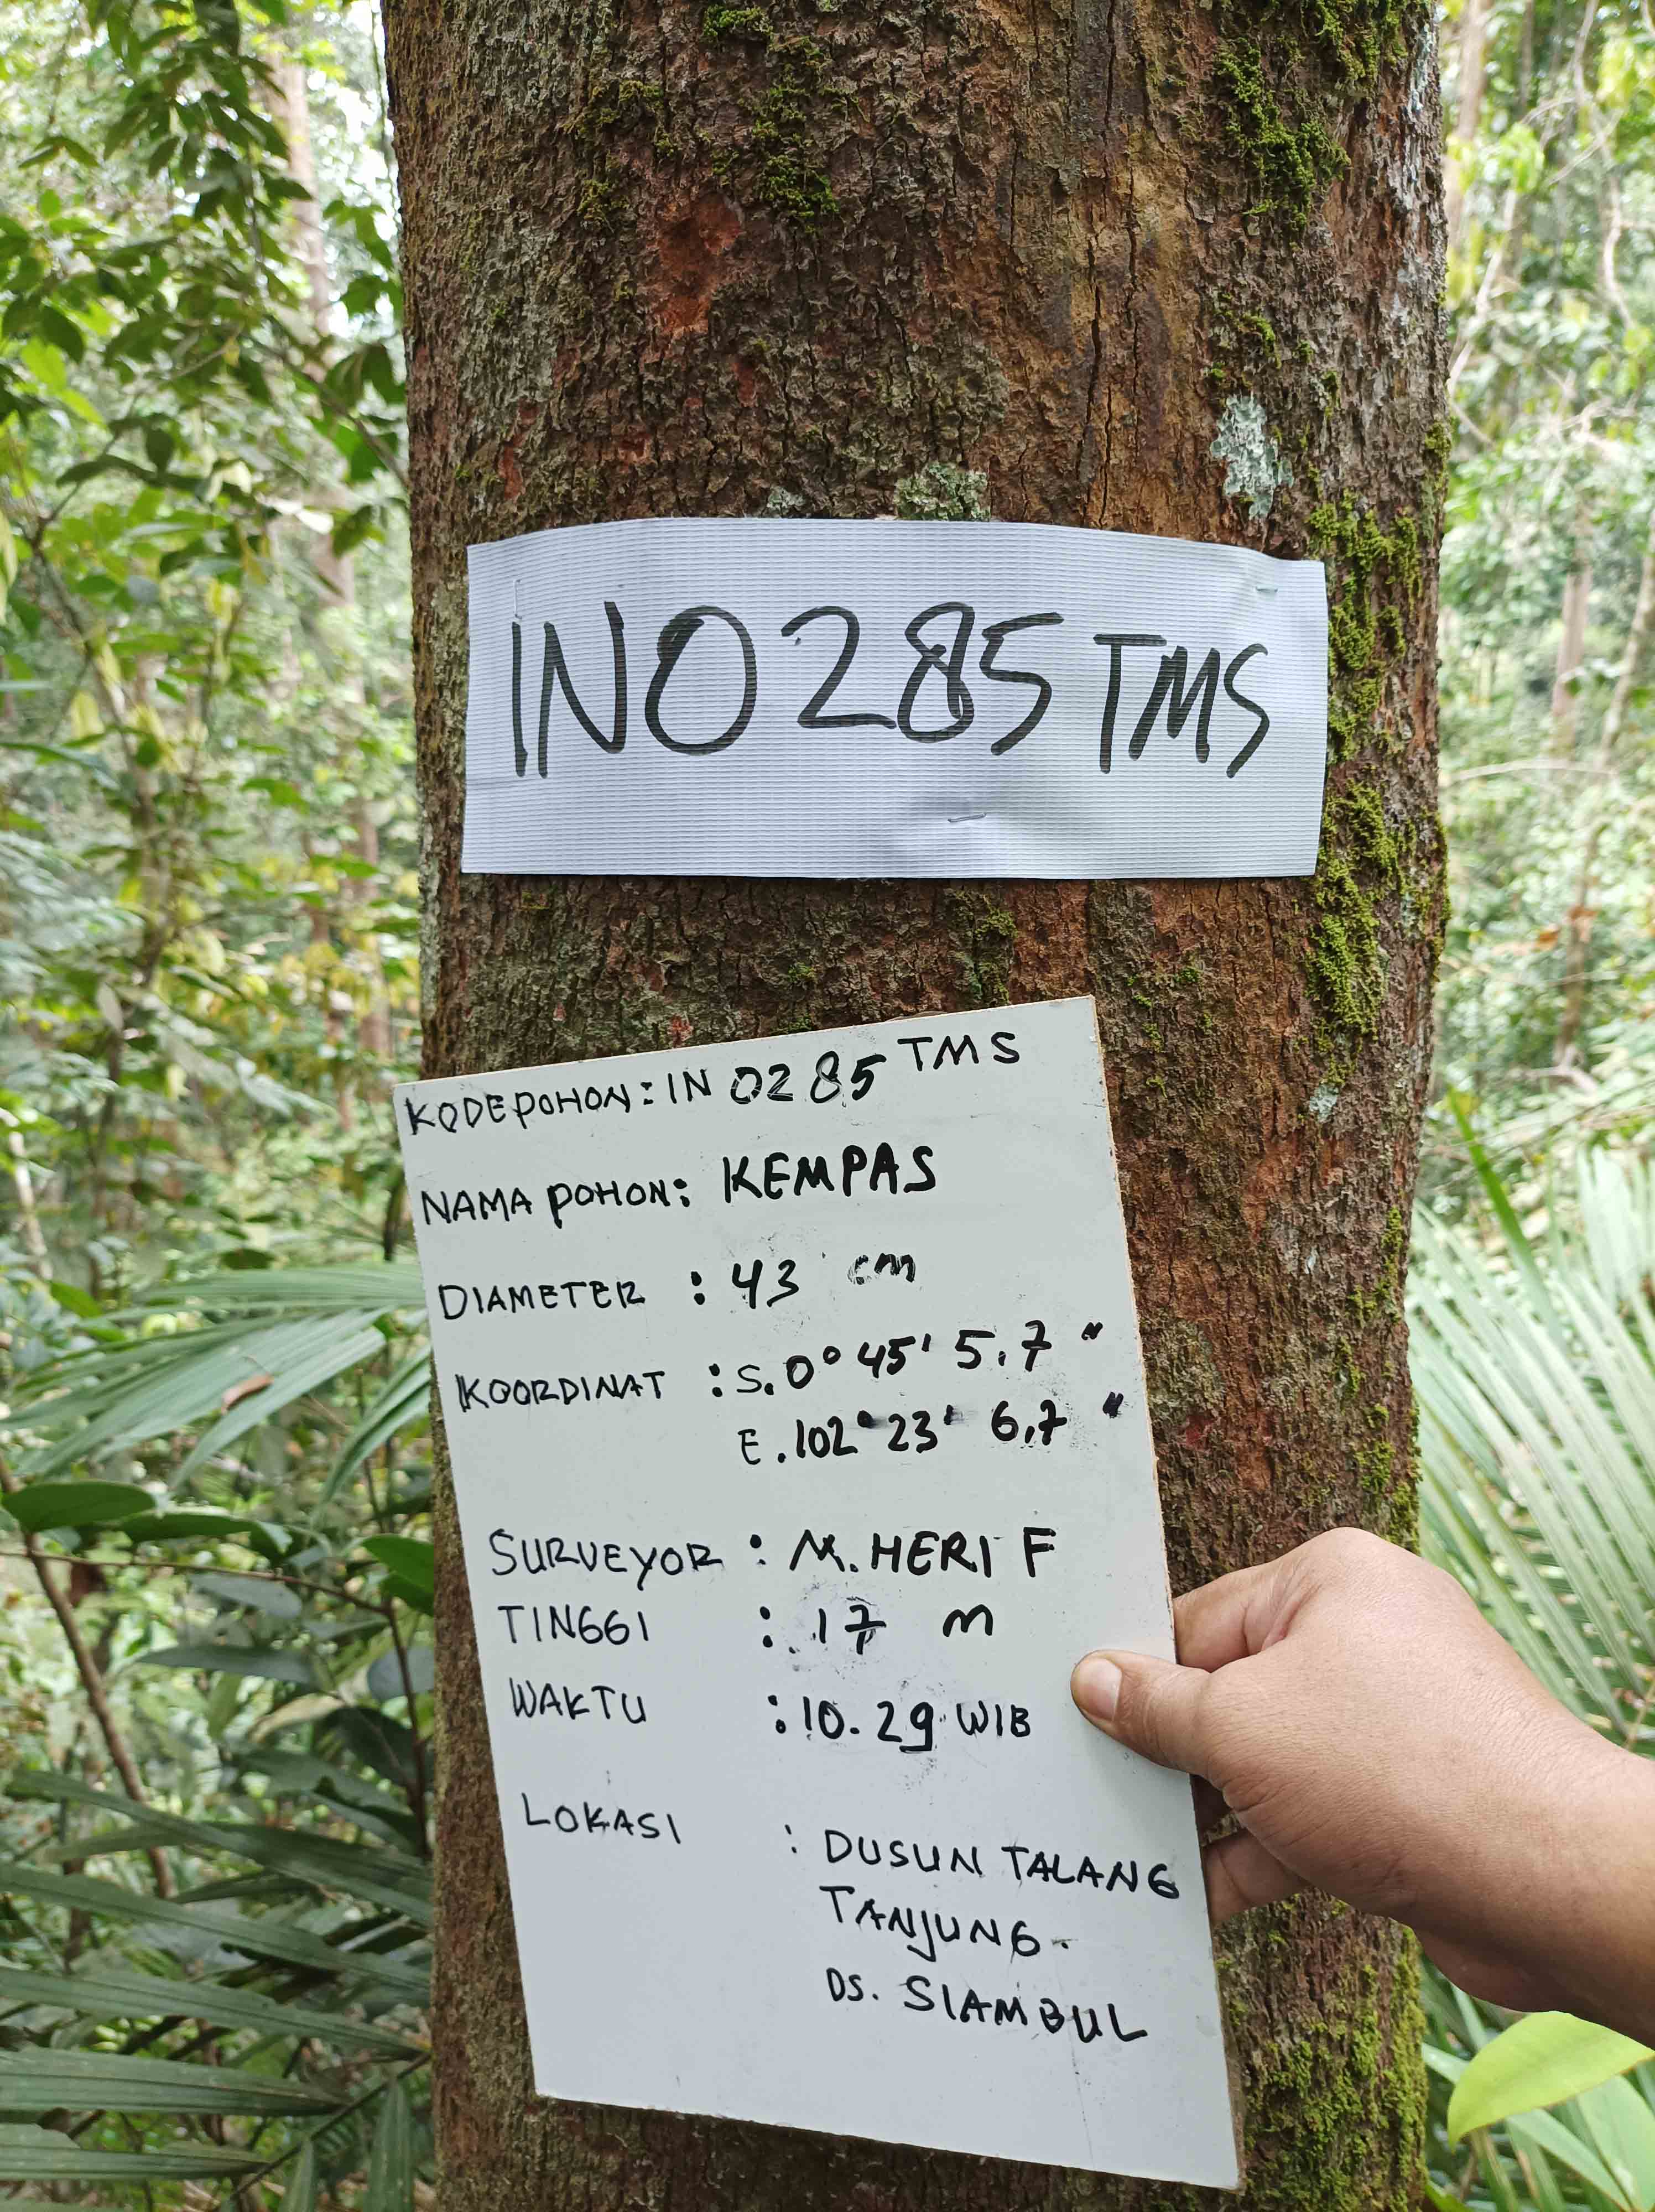 INO285 TMS
KODE POHON : IN 0285 TMS
NAMA POHON : KEMPAS
DIAMETER : 43 cm
KOORDINAT : S. 0° 45' 5.7 "
E. 102° 23' 6,7 "
SURVEYOR : M. HERI F
TINGGI : 17 m
WAKTU : 10.29 WIB
LOKASI : DUSUN TALANG
TANJUNG.
DS. SIAMBUL